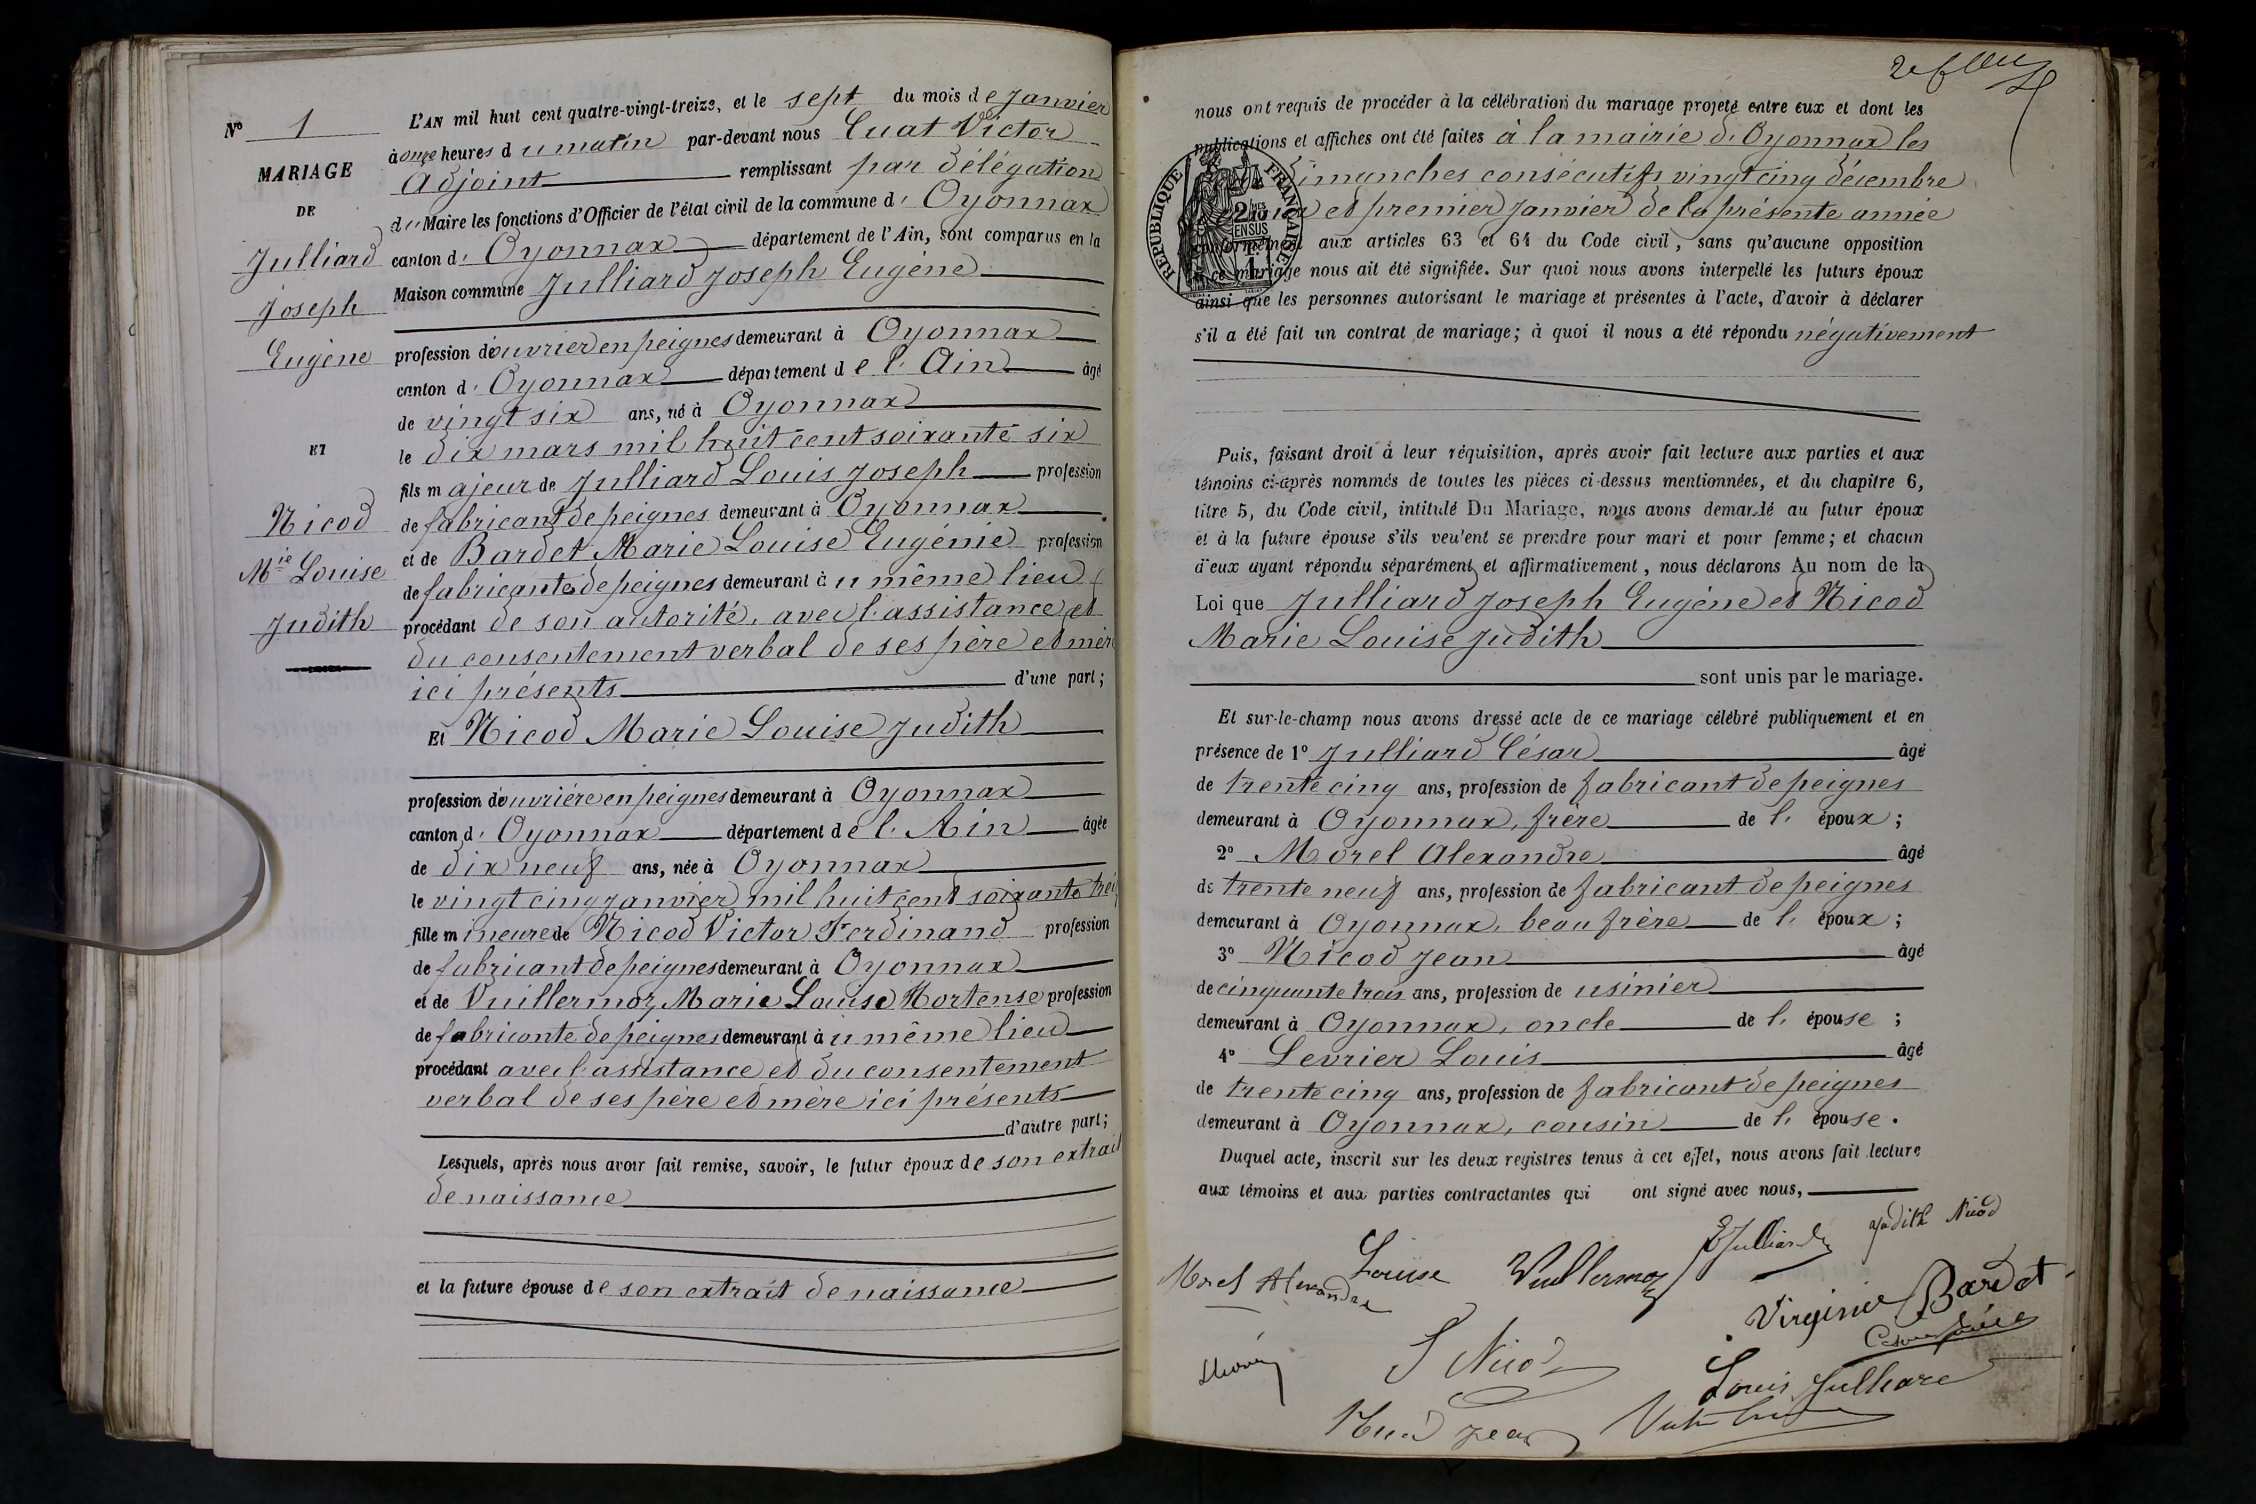 L'AN mil huit cent quatre-vingt-treize, et le sept du mois de janvier
N° 1
à onze heures du matin par-devant nous Cuat Victor
MARIAGE
Adjoint remplissant par délégation
DE
du Maire les fonctions d'Officier de l'état civil de la commune d'Oyonnax
Julliard
canton d'Oyonnax département de l'Ain, sont comparus en la
Joseph
Maison commune Julliard Joseph Eugène
Eugène
profession d'ouvrier en peignes demeurant à Oyonnax
canton d'Oyonnax département de l'Ain âgé
de vingt six ans, né à Oyonnax
ET
le dix mars mil huit cent soixante six
fils majeur de Julliard Louis Joseph profession
Nicod
de fabricant de peignes demeurant à Oyonnax
et de Bardet Marie Louise Eugénie profession
Mie Louise
de fabricante de peignes demeurant au même lieu
Judith
procédant de son autorité, avec l'assistance et
du consentement verbal de ses père et mère
ici présents d'une part;
Et Nicod Marie Louise Judith
profession d'ouvrière en peignes demeurant à Oyonnax
canton d'Oyonnax département de l'Ain âgée
de dix neuf ans, née à Oyonnax
le vingt cinq janvier mil huit cent soixante treize
fille mineure de Nicod Victor Ferdinand profession
de fabricant de peignes demeurant à Oyonnax
et de Vuillermoz Marie Louise Hortense profession
de fabricante de peignes demeurant au même lieu
procédant avec l'assistance et du consentement
verbal de ses père et mère ici présents
d'autre part;
Lesquels, après nous avoir fait remise, savoir, le futur époux de son extrait
de naissance
et la future épouse de son extrait de naissance
nous ont requis de procéder à la célébration du mariage projeté entre eux et dont les
publications et affiches ont été faites à la mairie d'Oyonnax les
dimanches consécutifs vingt cinq décembre
et premier janvier de la présente année
conformément aux articles 63 et 64 du Code civil, sans qu'aucune opposition
à ce mariage nous ait été signifiée. Sur quoi nous avons interpellé les futurs époux
ainsi que les personnes autorisant le mariage et présentes à l'acte, d'avoir à déclarer
s'il a été fait un contrat de mariage; à quoi il nous a été répondu négativement
RÉPUBLIQUE FRANÇAISE
Puis, faisant droit à leur réquisition, après avoir fait lecture aux parties et aux
témoins ci-après nommés de toutes les pièces ci-dessus mentionnées, et du chapitre 6,
titre 5, du Code civil, intitulé Du Mariage, nous avons demandé au futur époux
et à la future épouse s'ils veulent se prendre pour mari et pour femme; et chacun
d'eux ayant répondu séparément et affirmativement, nous déclarons Au nom de la
Loi que Julliard Joseph Eugène et Nicod
Marie Louise Judith
sont unis par le mariage.
Et sur-le-champ nous avons dressé acte de ce mariage célébré publiquement et en
présence de 1° Julliard César âgé
de trente cinq ans, profession de fabricant de peignes
demeurant à Oyonnax, frère de l'époux;
2° Morel Alexandre âgé
de trente neuf ans, profession de fabricant de peignes
demeurant à Oyonnax, beau frère de l'époux;
3° Nicod Jean âgé
de cinquante trois ans, profession de usinier
demeurant à Oyonnax, oncle de l'épouse;
4° Levrier Louis âgé
de trente cinq ans, profession de fabricant de peignes
demeurant à Oyonnax, cousin de l'épouse.
Duquel acte, inscrit sur les deux registres tenus à cet effet, nous avons fait lecture
aux témoins et aux parties contractantes qui ont signé avec nous,
Judith Nicod
E Julliard
Morel Alexandre
Louise Vuillermoz
Virginie Bardet
Nicod
Louis Julliard
Nicod Jean